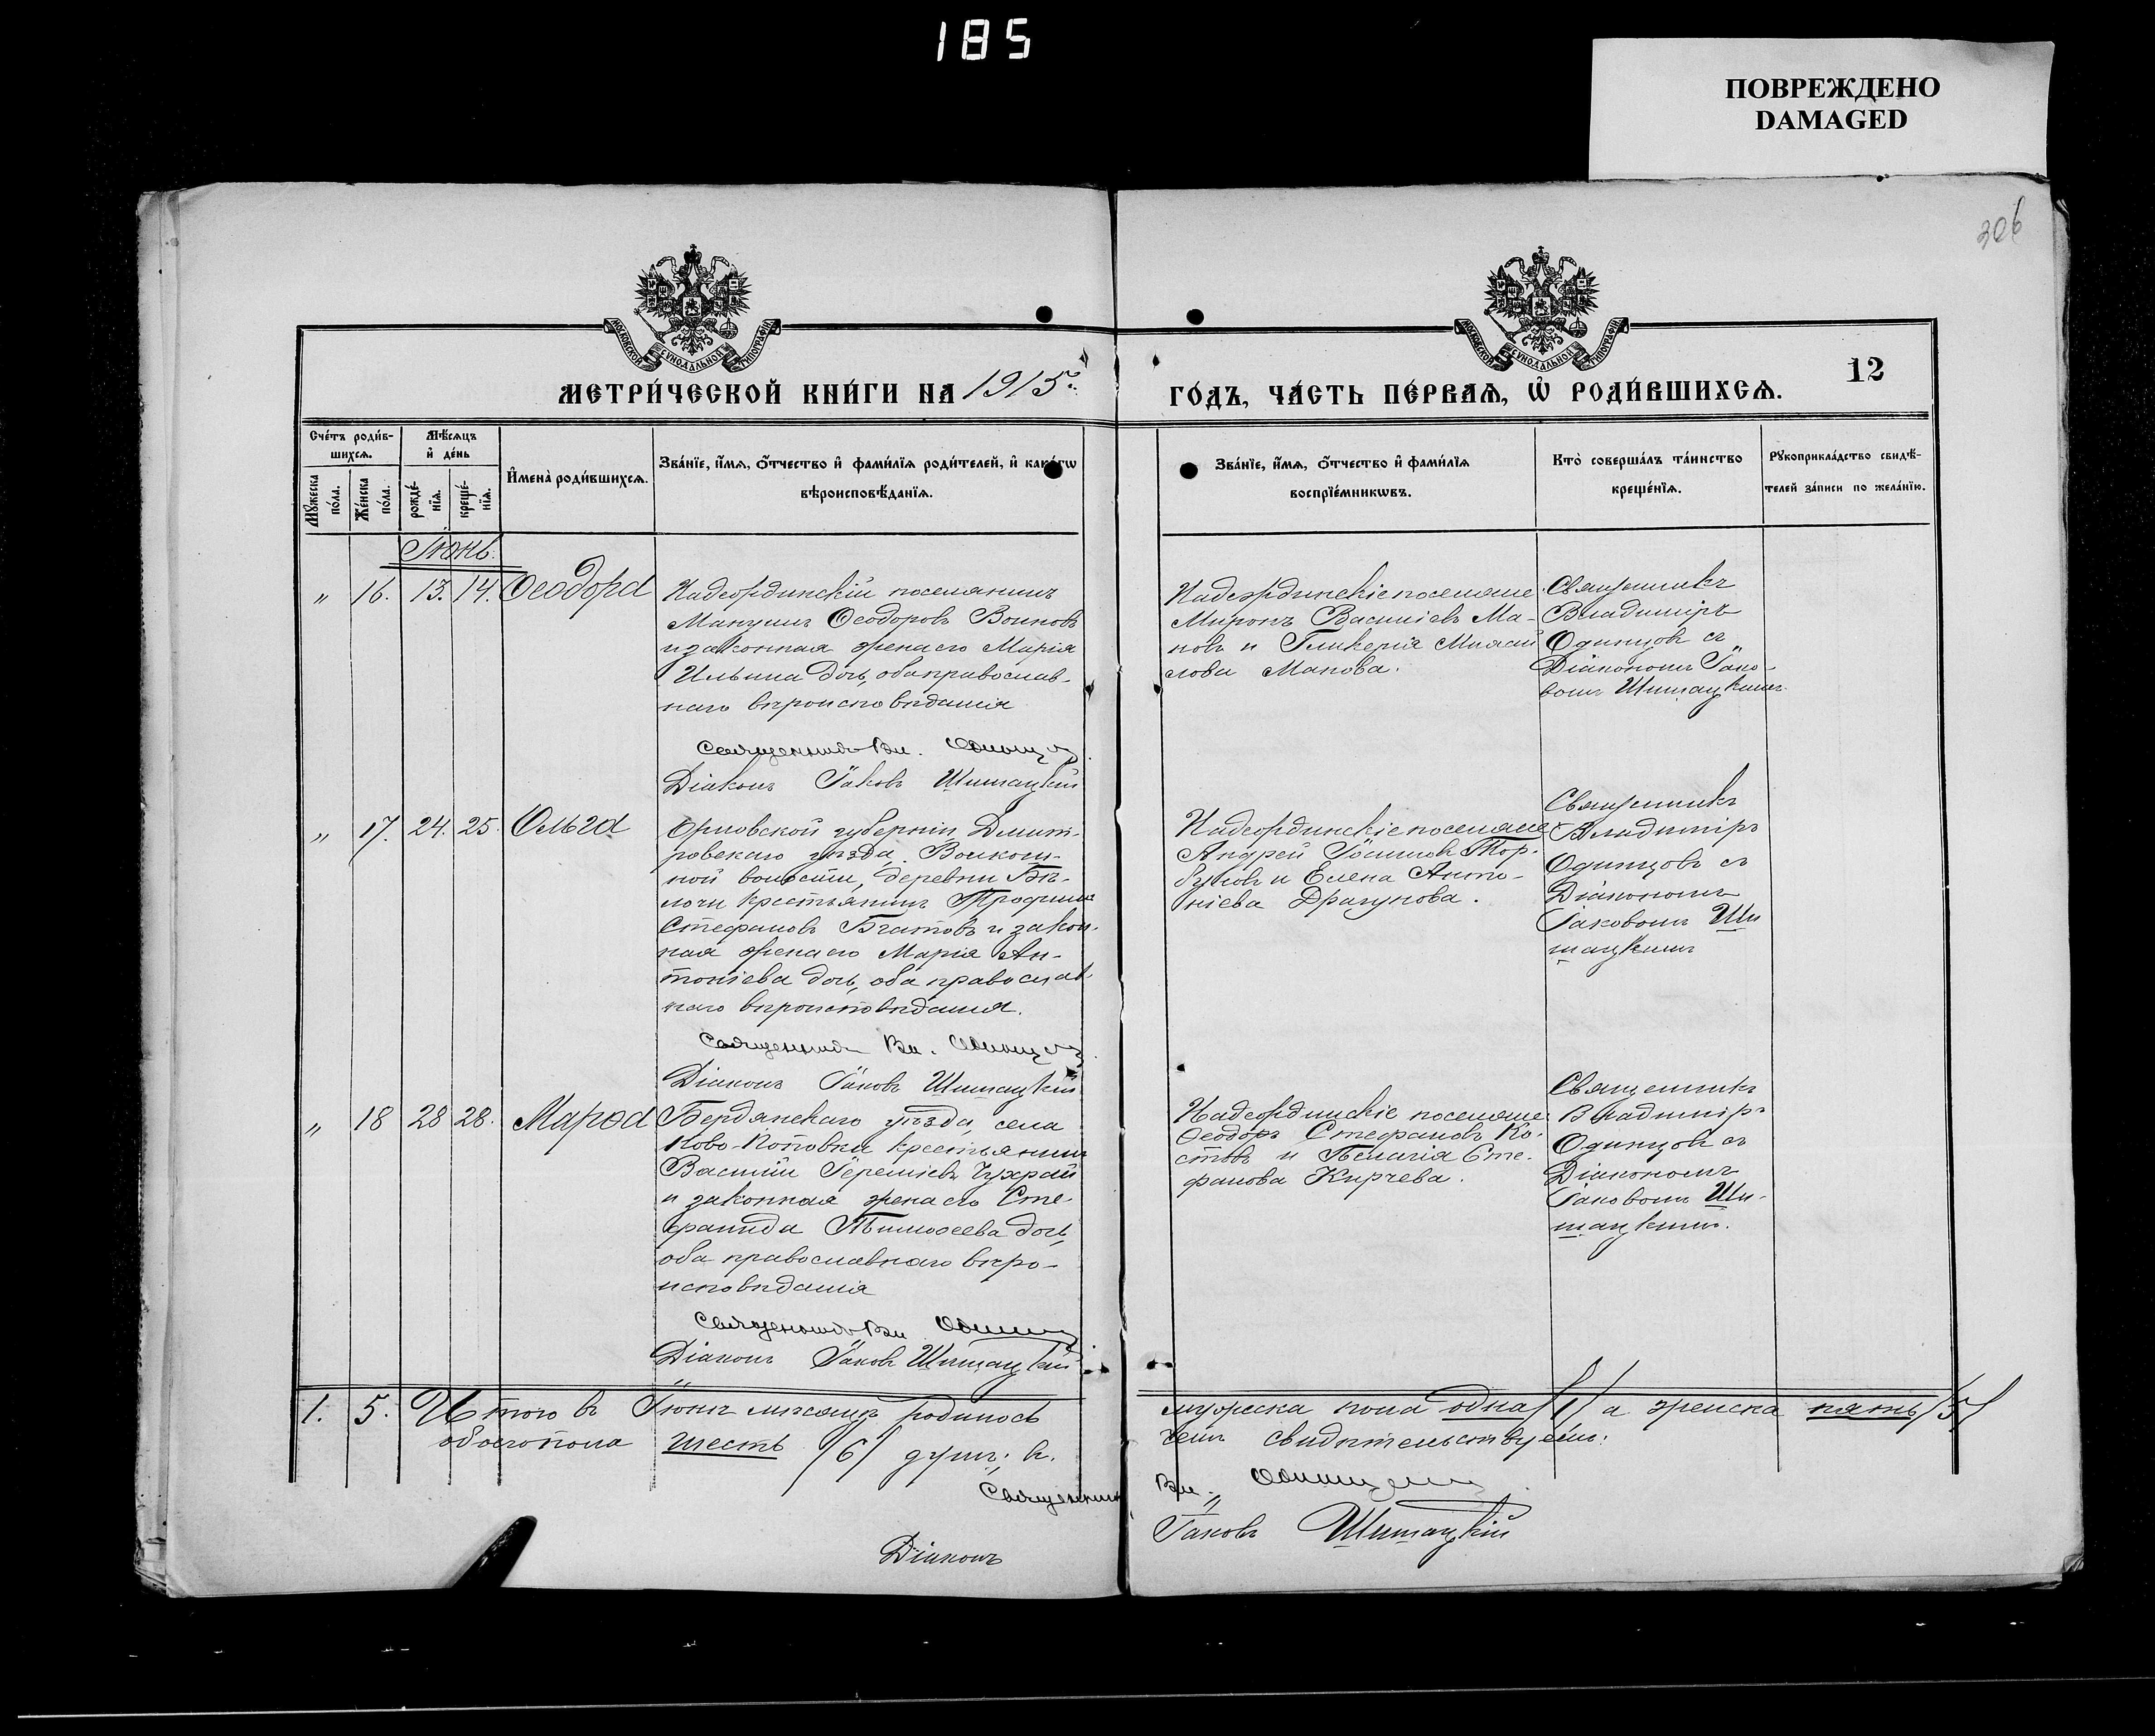 185
ПОВРЕЖДЕНО
DAMAGED
306
МОСКОВСКОЙ СУНОДАЛЬНОЙ ТИПОГРАФІИ
МОСКОВСКОЙ СУНОДАЛЬНОЙ ТИПОГРАФІИ
МЕТРИ́ЧЕСКОЙ КНИ́ГИ НА 1915 г.
ГО́ДЪ, ЧА́СТЬ ПЕ́РВАѦ, Ѡ҆ РОДИ́ВШИХСѦ.
12
Сче́тъ роди́вшихсѧ.
Мꙋ́жеска по́ла.
Же́нска по́ла.
Мѣ́сѧцъ и҆ де́нь
рожде́нїѧ.
креще́нїѧ.
И҆мена̀ роди́вшихсѧ.
Зва́нїе, и҆́мѧ, ѻ҆́тчество и҆ фами́лїѧ роди́телей, и҆ како́гѡ
вѣроисповѣ́данїѧ.
Зва́нїе, и҆́мѧ, ѻ҆́тчество и҆ фами́лїѧ
воспрїе́мникѡвъ.
Кто̀ соверша́лъ та́инство
креще́нїѧ.
Рꙋкоприкла́дство свидѣ́-
телей за́писи по жела́нїю.
Іюнь.
„ 16. 13. 14. Ѳеодора
Надеждинскій поселянинъ
Ѳеодоровъ Воиновъ
и законная жена его Марія
Ильина дочь, оба православ-
наго вѣроисповѣданія
Священникъ Вл. Одинцов
Діаконъ Іаковъ Шишацкій
Надеждинскіе поселяне
Миронъ Василіевъ Ма-
новъ и Гликерія
Манова.
Священникъ
Владиміръ
Одинцовъ съ
Діакономъ Іако-
вомъ Шишацкимъ
„ 17. 24. 25. Ольга
Орловской губерніи, Дмит-
ровскаго уѣзда,
ной волости, деревни Бѣ-
лочи крестьянинъ Трофимъ
Стефановъ и закон-
ная жена его Марія Ан-
тоніева дочь, оба православ-
наго вѣроисповѣданія.
Священникъ Вл. Одинцов
Діаконъ Іаковъ Шишацкій
Надеждинскіе поселяне
Андрей Іоанновъ Тор-
буловъ и Елена Анто-
ніева Драгунова.
Священникъ
Владиміръ
Одинцовъ съ
Діакономъ
Іаковомъ Ши-
шацкимъ
„ 18 28 28. Марѳа
Бердянскаго уѣзда, села
Ново-Поповки крестьянинъ
Василій Іереміевъ Чухрай
и законная жена его Сте-
фанида Тимоѳеева дочь,
оба православнаго вѣро-
исповѣданія
Священникъ Вл. Одинцов
Діаконъ Іаковъ Шишацкій
Надеждинскіе поселяне
Ѳеодоръ Стефановъ Ко-
стовъ и Пелагія Сте-
фанова Кирчева.
Священникъ
Владиміръ
Одинцовъ съ
Діакономъ
Іаковомъ Ши-
шацкимъ.
1. 5. Итого въ Іюнѣ мѣсяцѣ родилось
мужеска пола одна /1/ а женска пять /5/
обоего пола шесть /6/ душъ; въ
чемъ свидѣтельствуемъ:
Священникъ Вл. Одинцов
Діаконъ Іаковъ Шишацкій